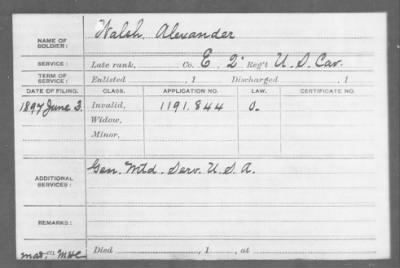 NAME OF SOLDIER: Walsh, Alexander
SERVICE: Late rank, Co. E, 2" Reg't U. S. Cav.
TERM OF SERVICE: Enlisted , 1 Discharged , 1
DATE OF FILING. CLASS. APPLICATION NO. LAW. CERTIFICATE NO.
1897 June 3. Invalid, 1191.844 O.
Widow,
Minor,
ADDITIONAL SERVICES: Gen. Mtd. Serv. U. S. A.
REMARKS:
Died , 1 , at